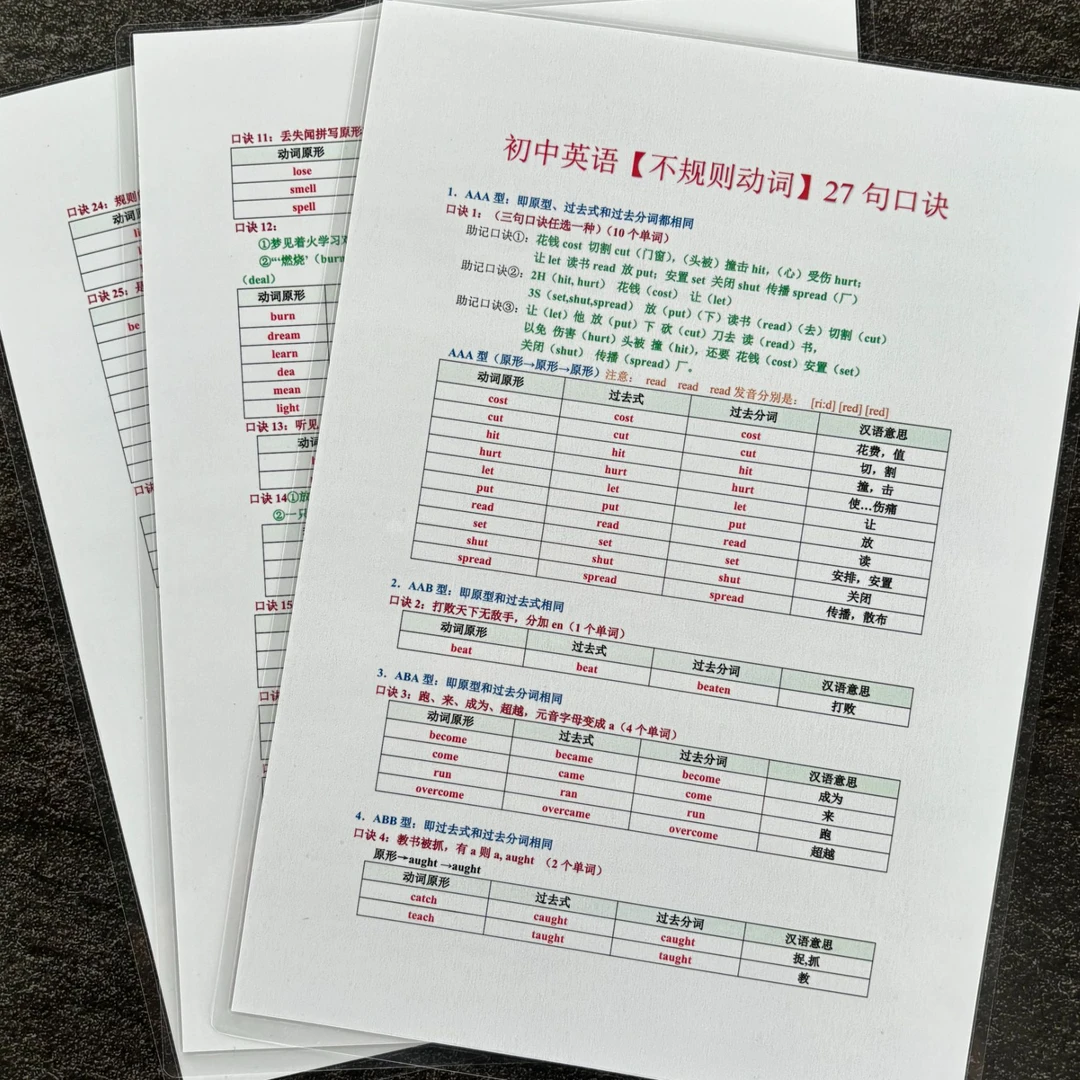 初中英语【不规则动词】27 句口诀
1. AAA 型：即原型、过去式和过去分词都相同
口诀 1：（三句口诀任选一种）（10 个单词）
助记口诀①：花钱 cost 切割 cut（门窗），（头被）撞击 hit，（心）受伤 hurt；
让 let 读书 read 放 put；安置 set 关闭 shut 传播 spread（厂）
助记口诀②：2H（hit, hurt） 花钱（cost） 让（let）
3S（set,shut,spread） 放（put）（下）读书（read）（去）切割（cut）
助记口诀③：让（let）他 放（put）下 砍（cut）刀去 读（read）书，
以免 伤害（hurt）头被 撞（hit），还要 花钱（cost）安置（set）
关闭（shut） 传播（spread）厂。
AAA 型（原形→原形→原形）注意： read read read 发音分别是： [ri:d] [red] [red]
动词原形 过去式 过去分词 汉语意思
cost cost cost 花费，值
cut cut cut 切，割
hit hit hit 撞，击
hurt hurt hurt 使…伤痛
let let let 让
put put put 放
read read read 读
set set set 安排，安置
shut shut shut 关闭
spread spread spread 传播，散布
2. AAB 型：即原型和过去式相同
口诀 2：打败天下无敌手，分加 en（1 个单词）
动词原形 过去式 过去分词 汉语意思
beat beat beaten 打败
3. ABA 型：即原型和过去分词相同
口诀 3：跑、来、成为、超越，元音字母变成 a（4 个单词）
动词原形 过去式 过去分词 汉语意思
become became become 成为
come came come 来
run ran run 跑
overcome overcame overcome 超越
4. ABB 型：即过去式和过去分词相同
口诀 4：教书被抓，有 a 则 a, aught （2 个单词）
原形→aught →aught
动词原形 过去式 过去分词 汉语意思
catch caught caught 捉,抓
teach taught taught 教
口诀 11：丢失闻拼写原形
动词原形
lose
smell
spell
口诀 12：
①梦见着火学习
②“‘燃烧’（burn
（deal）
动词原形
burn
dream
learn
dea
mean
light
口诀 13：听见
口诀 14①放
②一只
口诀 15
口诀 24：规则
口诀 25：是
be